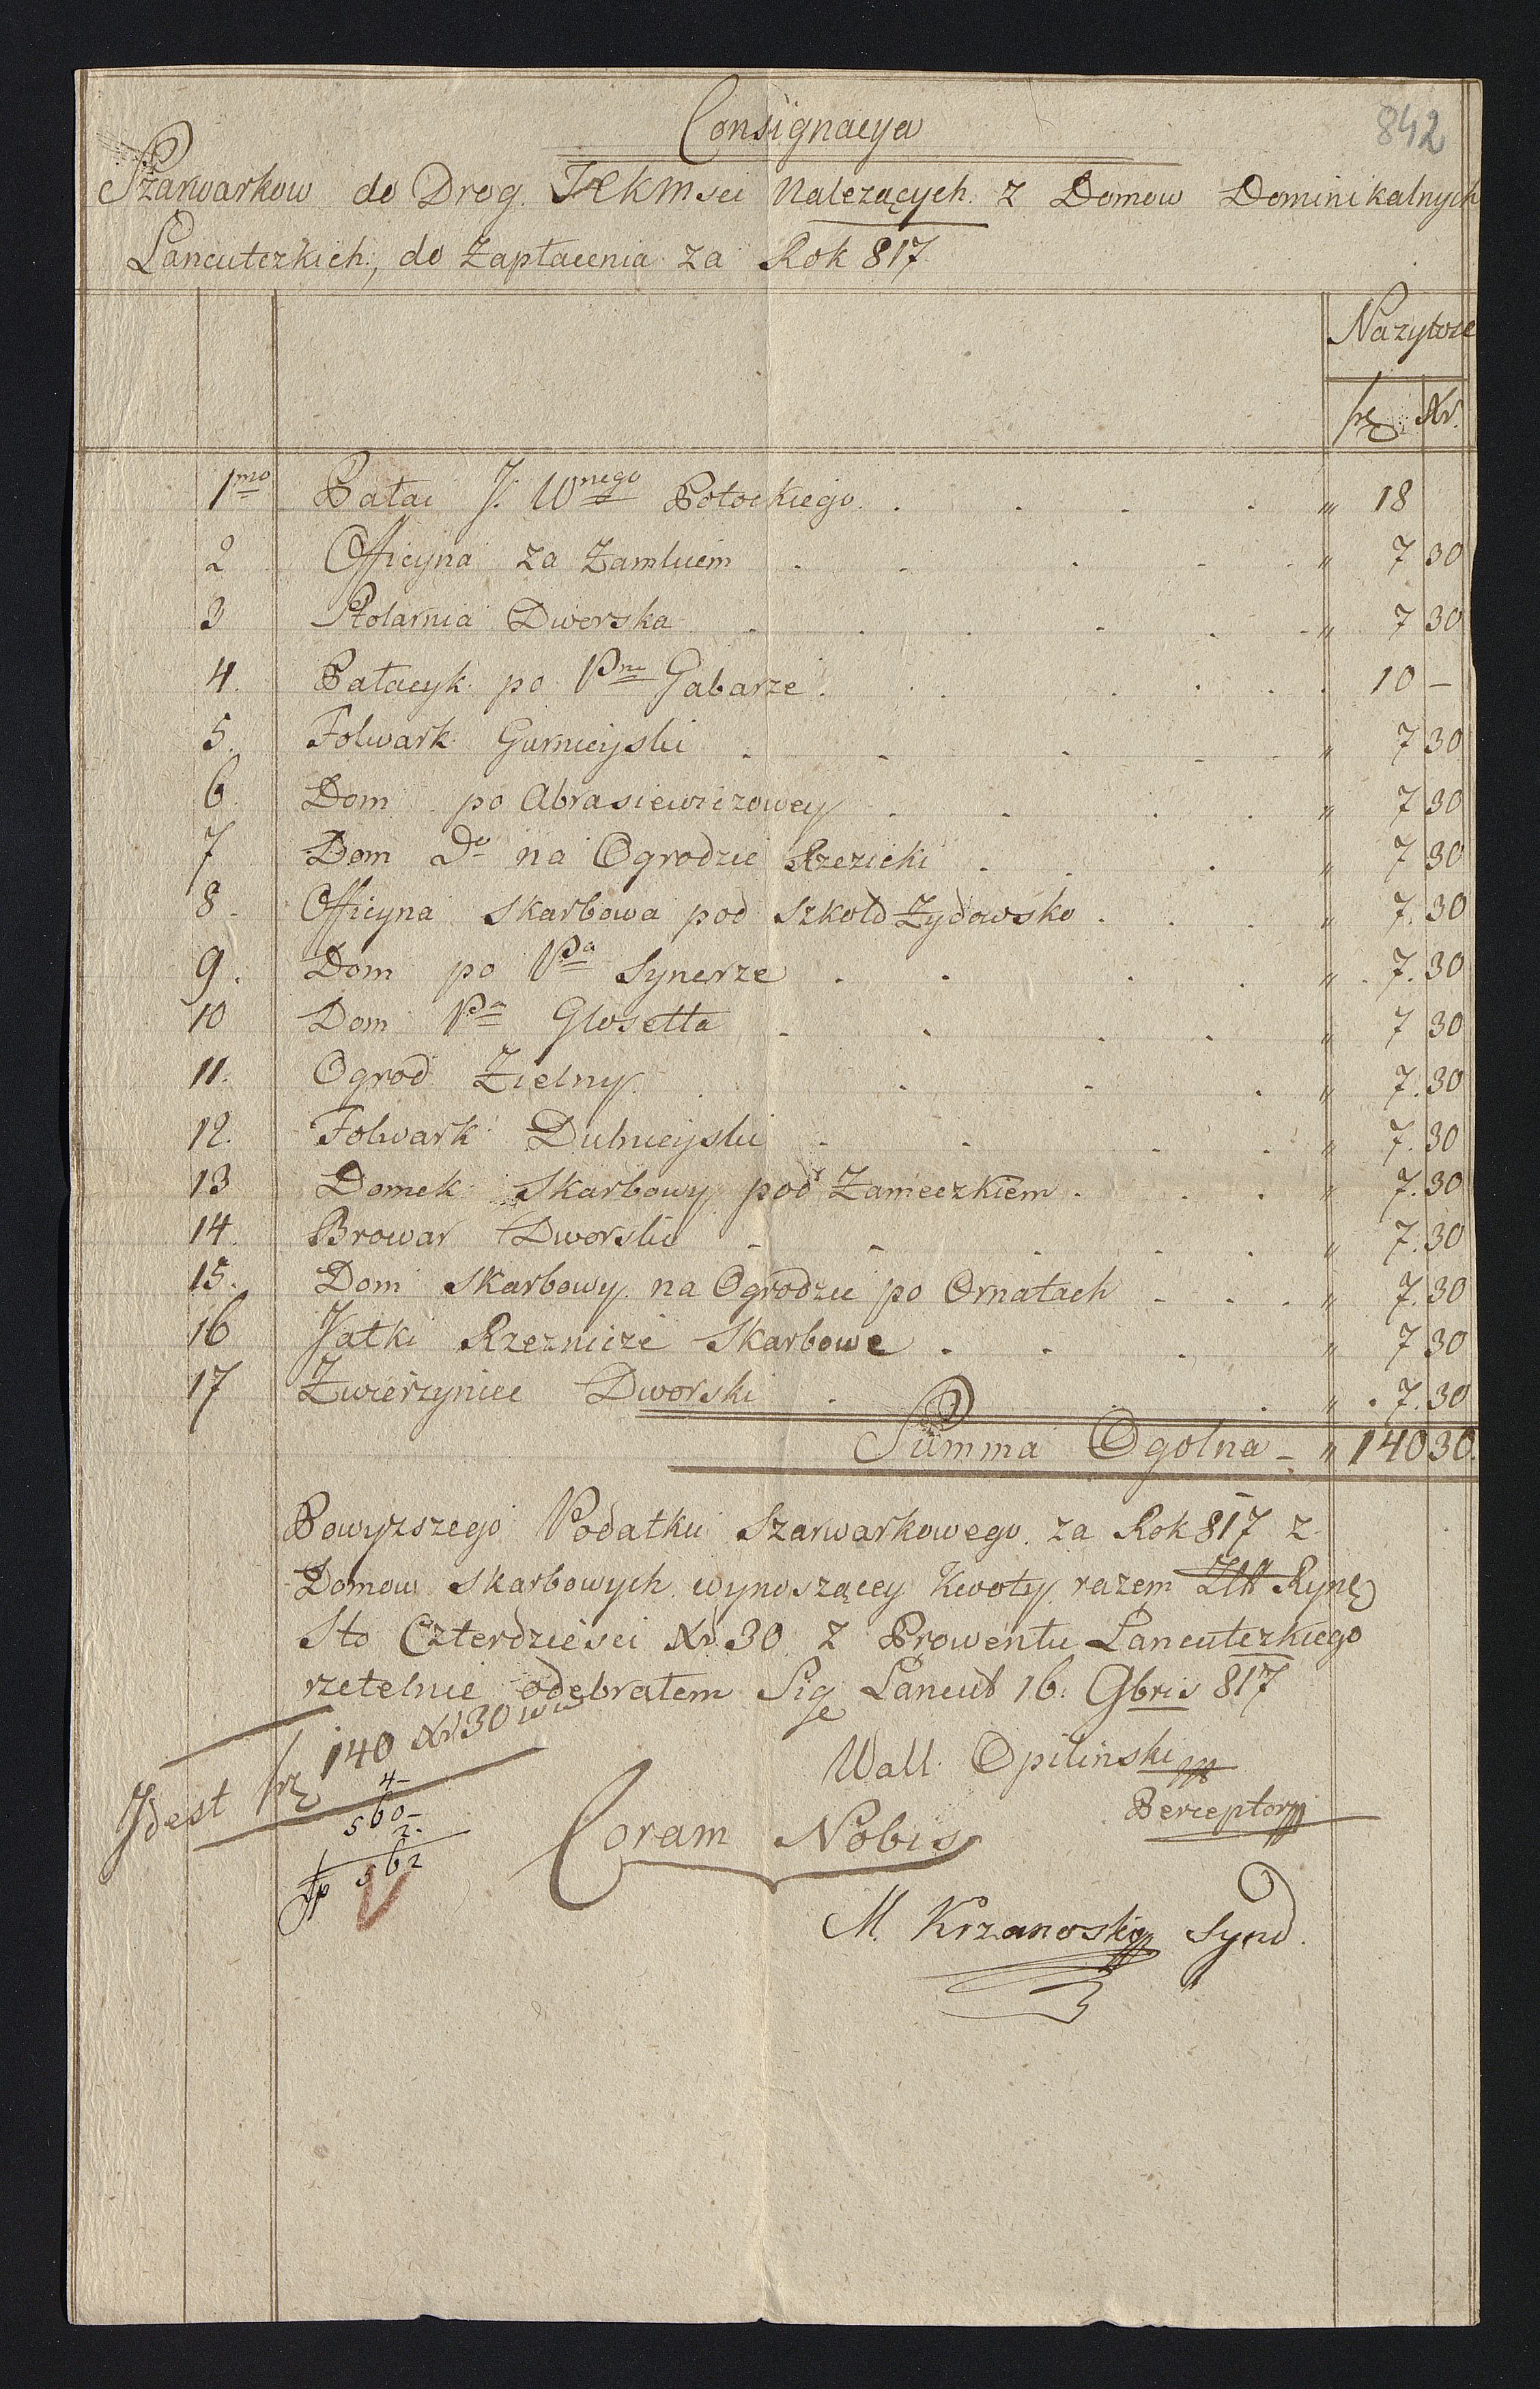 842
Consignacya
Szarwarkow do Drog JEKMsci Nalezących z Domow Dominikalnych
Lancutczkich, do Zapłacenia za Rok 817
Nazytose
rę Xr.
1mo Pałac J. Wnego Potockiego . . . . „ 18
2 Officyna za Zamkiem . . . . . „ 7 30
3 Stolarnia Dworska . . . . . . „ 7 30
4. Pałacyk po Pnu Gabarze . . . . . . 10 –
5. Folwark Gurnieyski . . . . . „ 7 30
6 Dom po Abrasiewiczowey . . . . „ 7 30
7 Dom Do na Ogrodzie Rzezicki . . . „ 7 30
8. Officyna Skarbowa pod Szkołą Zydowsko . . . „ 7. 30
9. Dom po Pa Synerze . . . . „ 7. 30
10 Dom Pa Glosetta . . . . „ 7 30
11. Ogrod Zielny . . . . „ 7. 30
12. Folwark Dulnieyski . . . . „ 7. 30
13 Domek Skarbowy pod Zameczkiem . . . „ 7. 30
14. Browar Dworski . . . . . „ 7. 30
15. Dom Skarbowy na Ogrodzie po Ornatach . . . „ 7. 30
16 Jatki Rzeznicze Skarbowe . . . „ 7 30
17 Zwierzyniec Dworski . . „ 7. 30
Summa Ogolna – „ 140 30.
Powyzszego Podatku Szarwarkowego za Rok 817 z
Domow Skarbowych wynoszącey Kwoty razem Złt Rynę
Sto Czterdziesci Xr 30 z Prowentu Lancutczkiego
rzetelnie odebrałem Sig Lancut 16. Gbris 817
Jdest rę 140 Xr 30 ww
4–
560–
2.
fp 562
Wall. Opilinski
Perceptor
Coram Nobis
M. Krzanoski Synd.